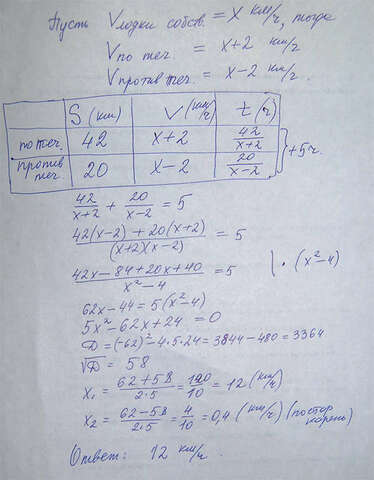 Пусть Vлодки собств. = x км/ч, тогда
Vпо теч. = x+2 км/ч
Vпротив теч. = x-2 км/ч
S (км) V (км/ч) t (ч)
по теч. 42 x+2 42/(x+2)
против теч. 20 x-2 20/(x-2) } +5ч.
42/(x+2) + 20/(x-2) = 5
(42(x-2) + 20(x+2))/((x+2)(x-2)) = 5
(42x-84+20x+40)/(x²-4) = 5 | · (x²-4)
62x-44 = 5(x²-4)
5x²-62x+24 = 0
D = (-62)²-4·5·24 = 3844-480 = 3364
√D = 58
x₁ = (62+58)/(2·5) = 120/10 = 12 (км/ч)
x₂ = (62-58)/(2·5) = 4/10 = 0,4 (км/ч) (постор. корень)
Ответ: 12 км/ч.